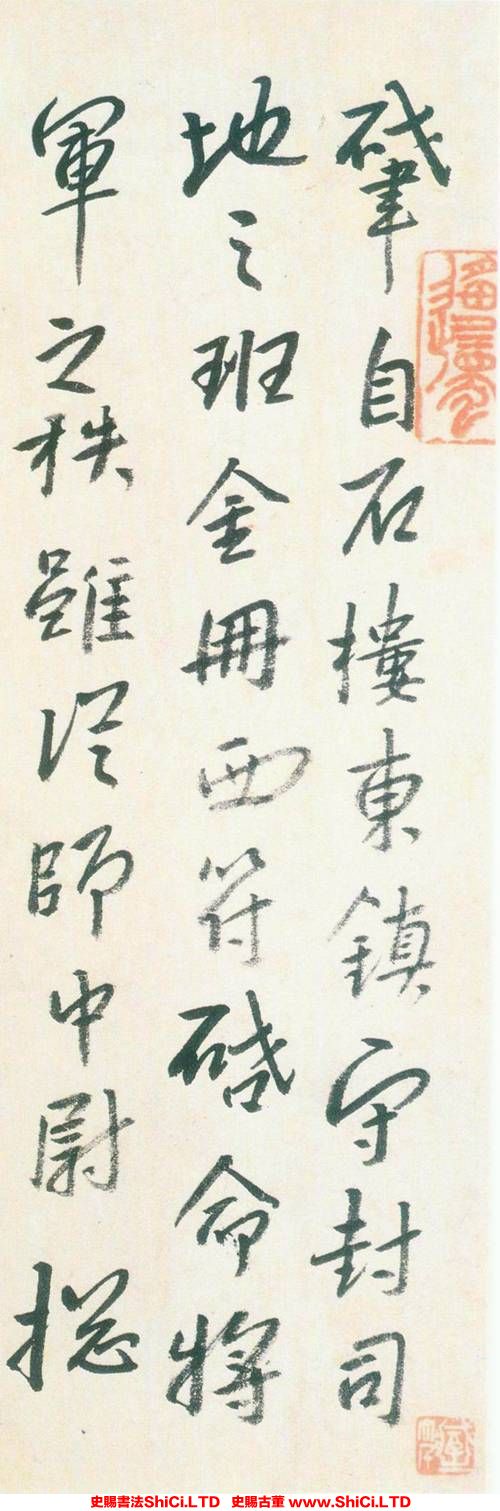 肇自石樓東鎮守封司
地之班金冊西符啓命將
軍之秩雖從師中尉揔
史賜書法ShiCi.LTD 史賜古董 www.ShiCi.LTD